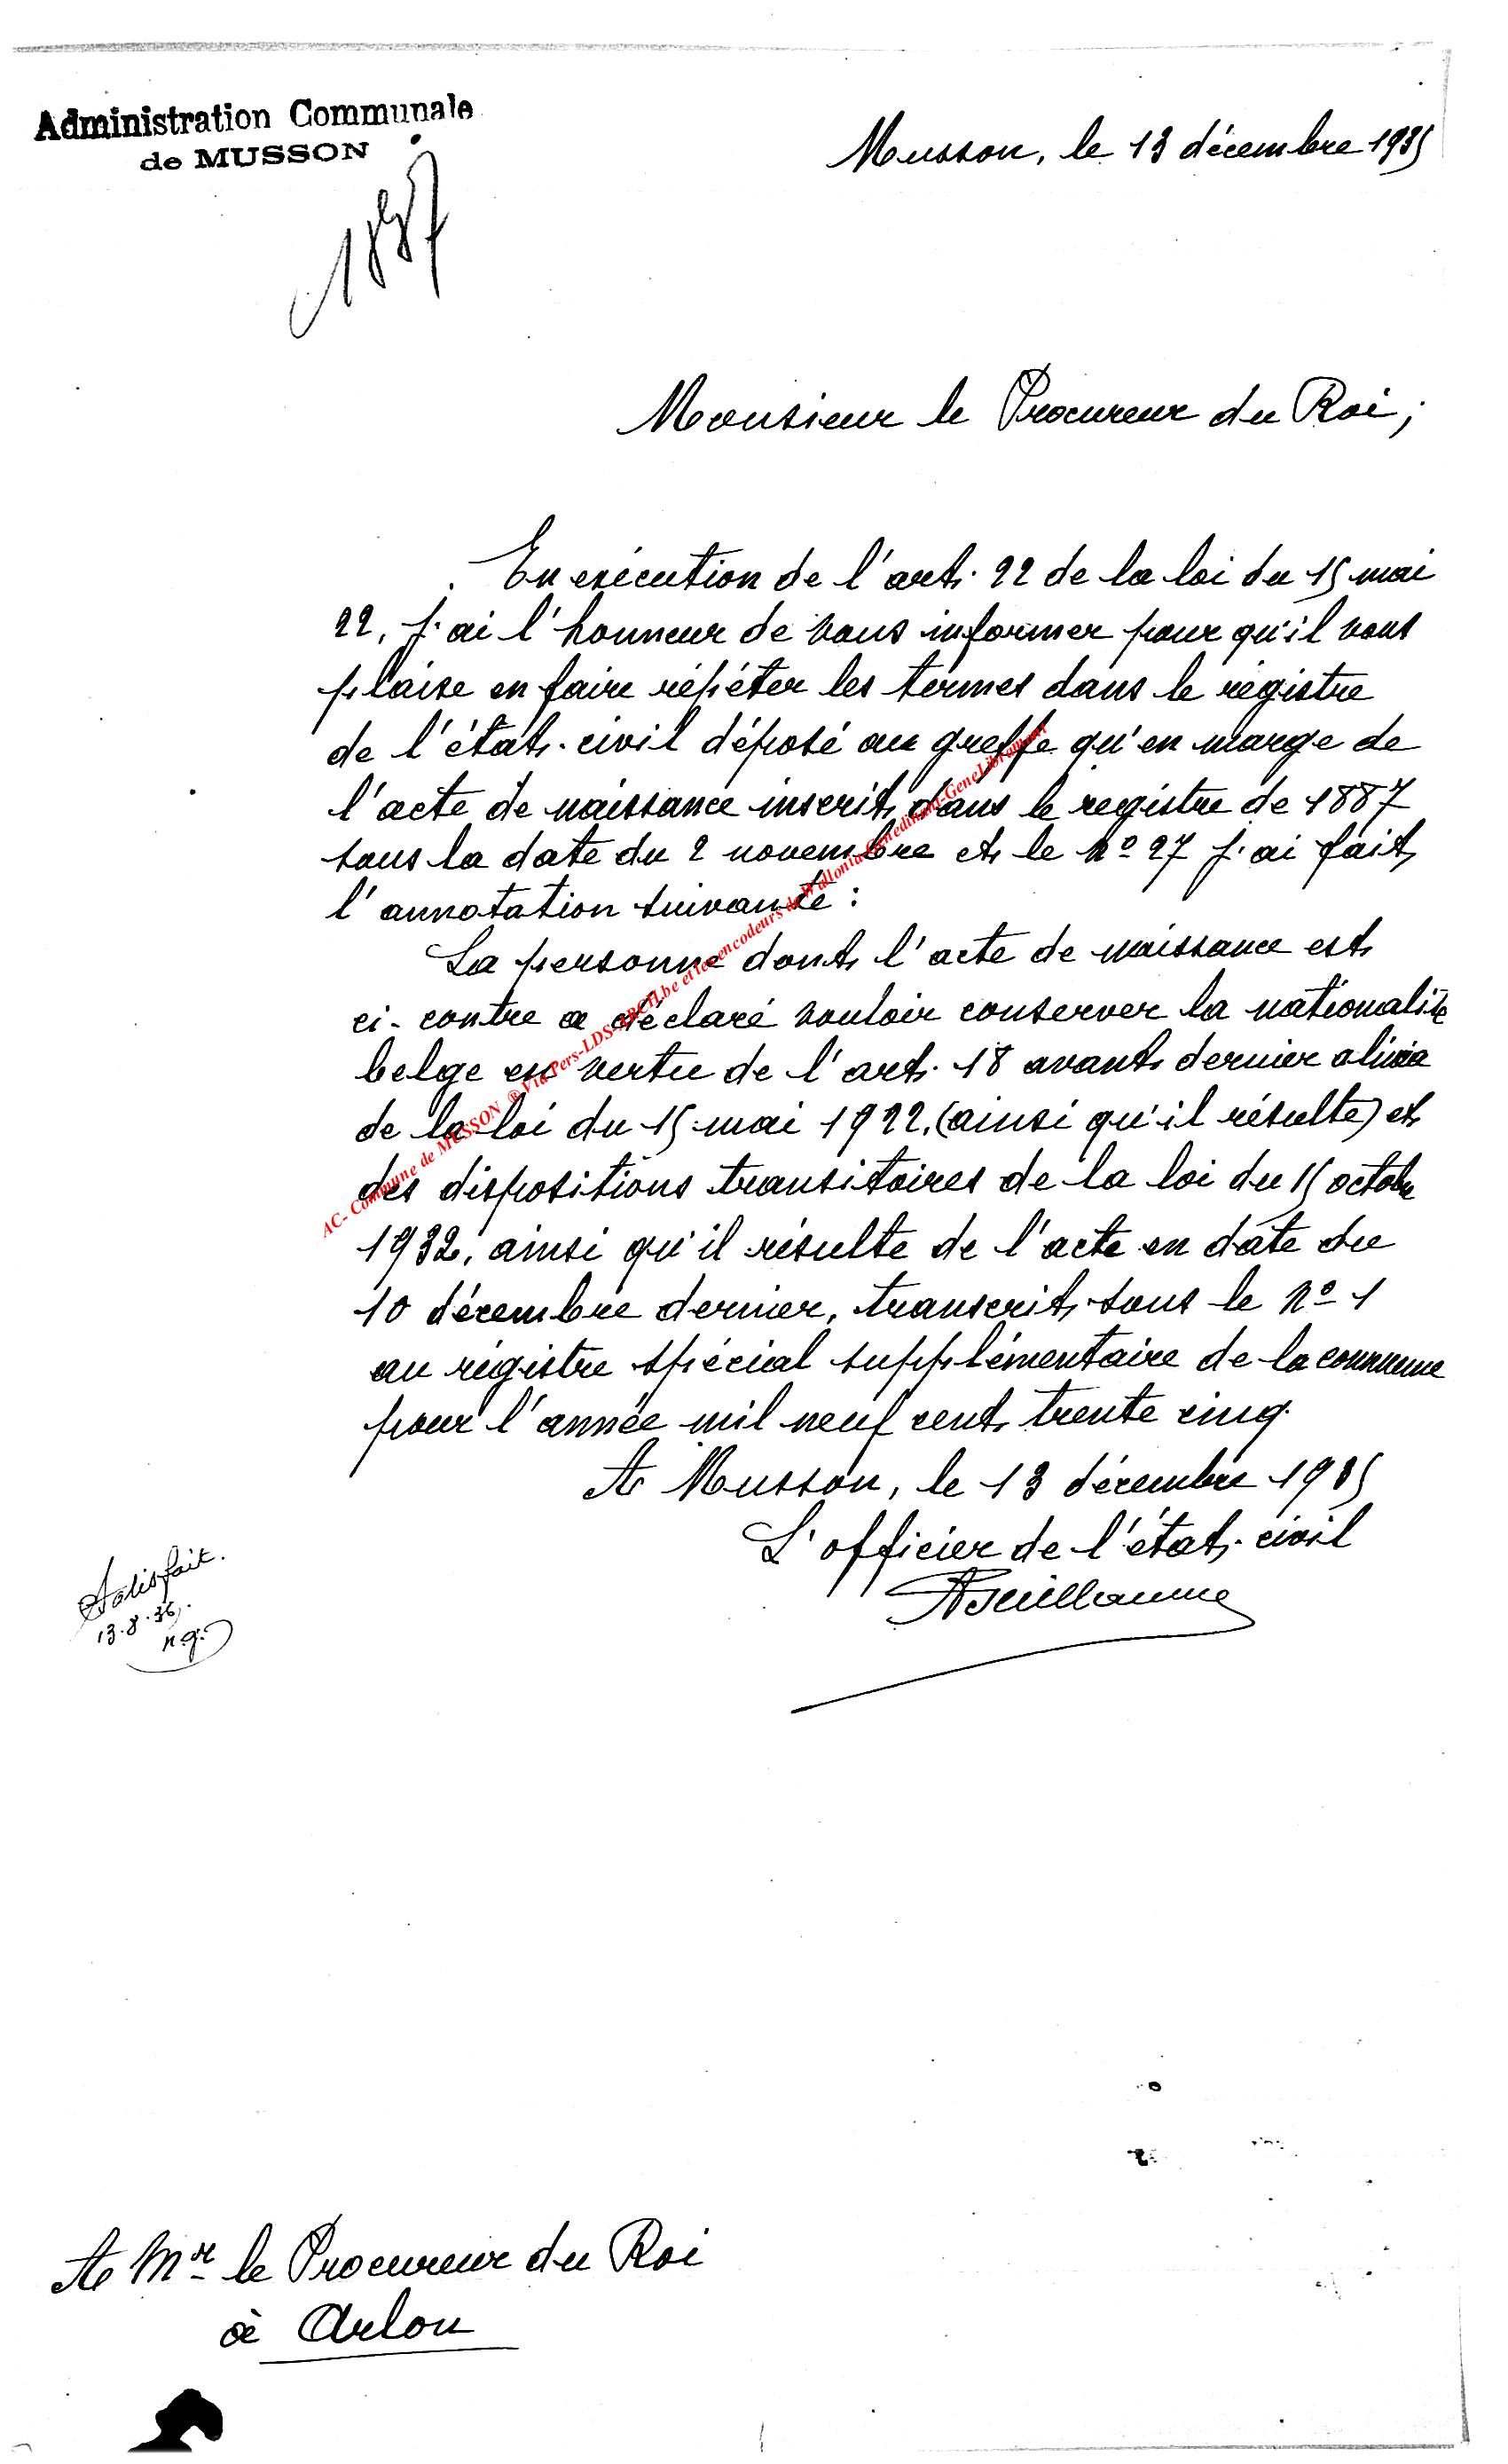 Administration Communale
de MUSSON
Musson, le 13 décembre 1935
1887
Monsieur le Procureur du Roi;
En exécution de l'art. 22 de la loi du 15 mai
22, j'ai l'honneur de vous informer pour qu'il vous
plaise en faire répéter les termes dans le régistre
de l'état-civil déposé au greffe qu'en marge de
l'acte de naissance inscrit dans le registre de 1887
sous la date du 2 novembre et le No 27 j'ai fait
l'annotation suivante :
La personne dont l'acte de naissance est
ci-contre a déclaré vouloir conserver la nationalité
belge en vertu de l'art. 18 avant dernier alinéa
de la loi du 15 mai 1922, (ainsi qu'il résulte) et
des dispositions transitoires de la loi du 15 octobre
1932, ainsi qu'il résulte de l'acte en date du
10 décembre dernier, transcrit sous le No 1
au régistre spécial supplémentaire de la commune
pour l'année mil neuf cent trente cinq.
A Musson, le 13 décembre 1935
L'officier de l'état-civil
AGuillaume
Satisfait.
13.8.36.
n.g.
A Mr le Procureur du Roi
à Arlon
AC- Commune de MUSSON ® Via Pers-LDS-ARCH.be et les encodeurs de Wallonia-Genedinant-GeneLibramont